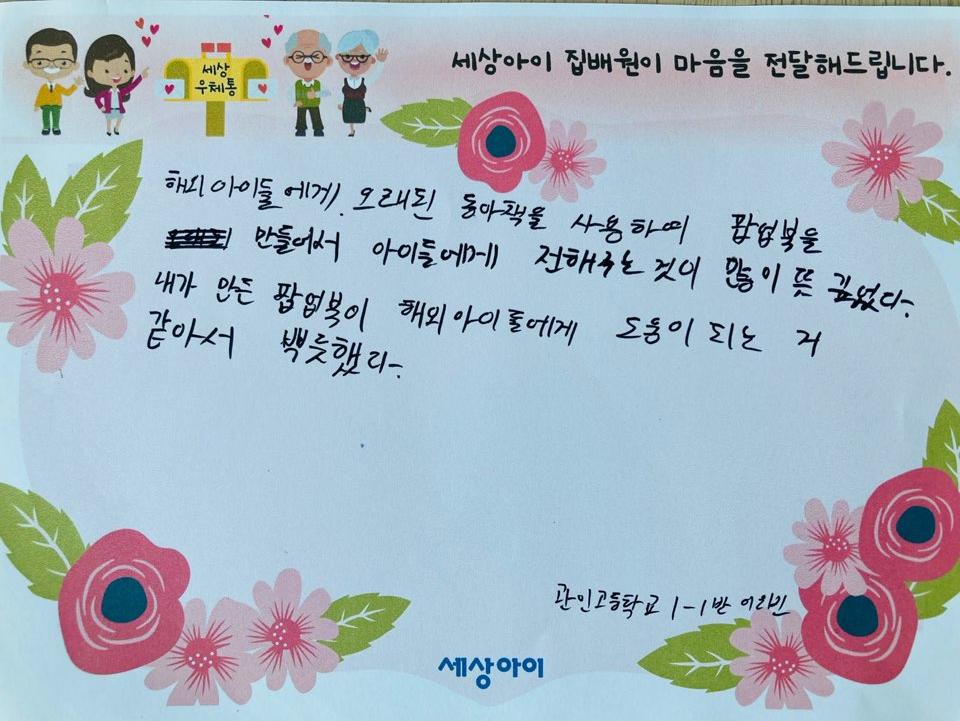 세상아이 집배원이 마음을 전달해드립니다.
세상
우체통
해외 아이들에게. 오래된 동아책을 사용하여 팝업북을
만들어서 아이들에게 전해주는 것이 많이 뜻 깊었다.
내가 만든 팝업북이 해외 아이들에게 도움이 되는 거
같아서 뿌듯했다.
관인고등학교 1-1반
세상아이